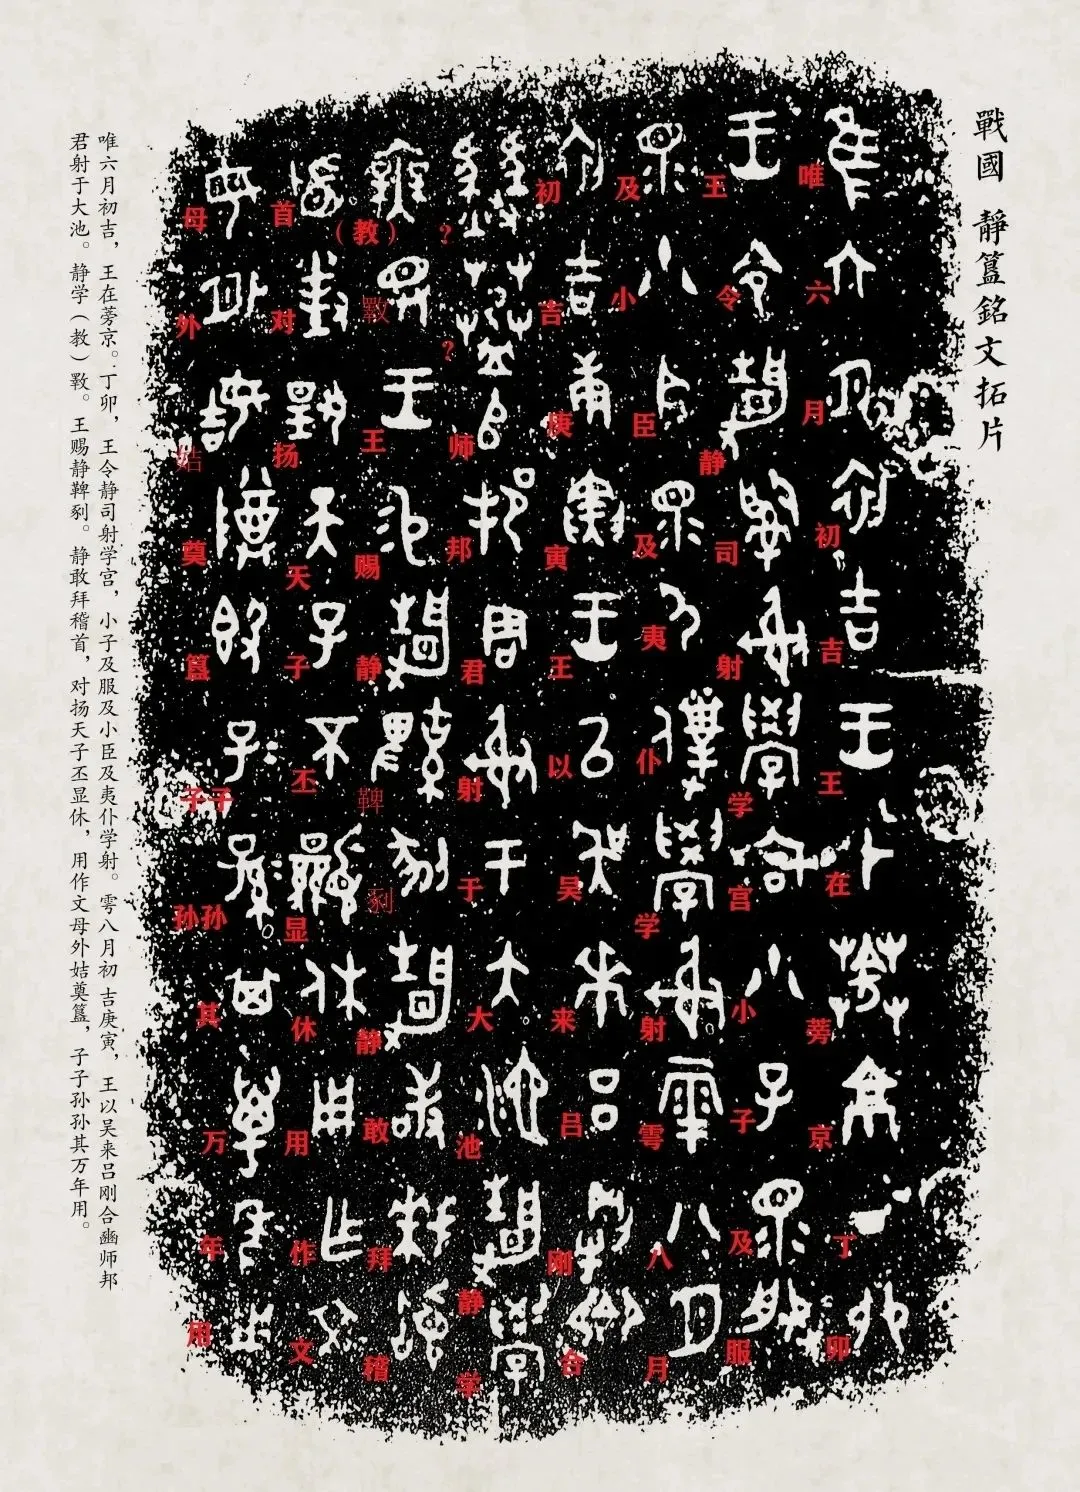 戰國 靜簋銘文拓片
唯六月初吉王在蒡京丁卯
王令静司射学宫小子及服
及小臣及夷仆学射雩八月
初吉庚寅王以吴来吕刚合
??师邦君射于大池静学
（教）斁王赐静鞞剢静敢拜稽
首对扬天子丕显休用作文
母外姞奠簋子子孙孙其万年用
唯六月初吉，王在蒡京。丁卯，王令静司射学宫，小子及服及小臣及夷仆学射。雩八月初吉庚寅，王以吴来吕刚合豳师邦
君射于大池。静学（教）斁。王赐静鞞剢。静敢拜稽首，对扬天子丕显休，用作文母外姞奠簋，子子孙孙其万年用。